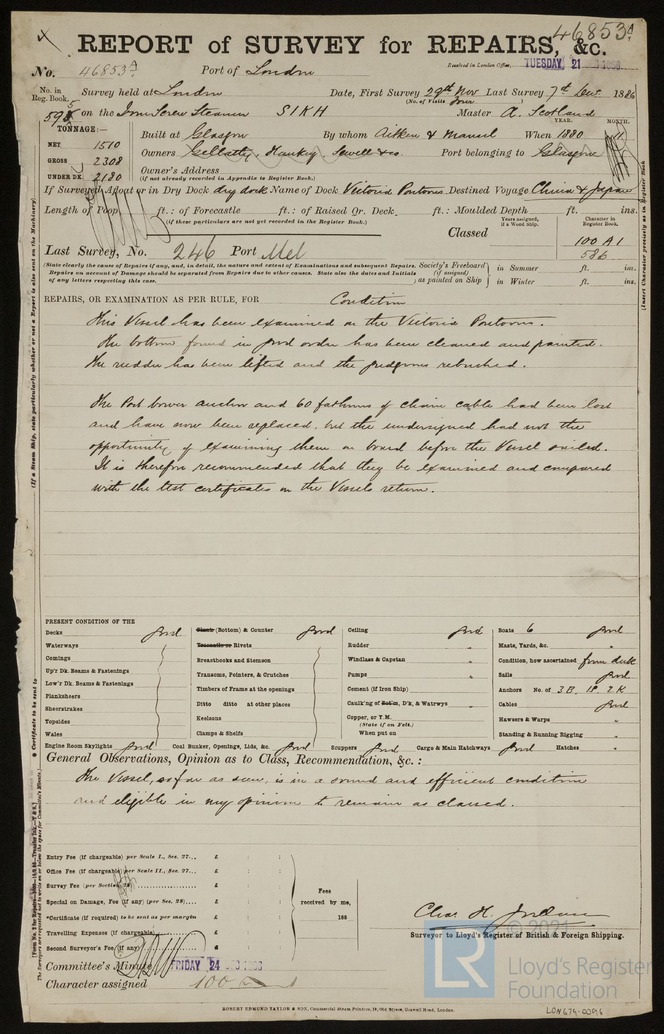 46853A
REPORT of SURVEY for REPAIRS, &c.
No. 46853A Port of London Received in London Office, TUESDAY, 21 DEC 1886
No. in Reg. Book. Survey held at London Date, First Survey 29th Nov Last Survey 7th Dec. 1886
(No. of Visits four)
on the Iron Screw Steamer SIKH Master A. Scotland
TONNAGE:— YEAR. MONTH.
NET 1510 Built at Glasgow By whom Aitken & Mansel When 1880 11
GROSS 2308 Owners Gellatly, Hankey, Sewell & Co. Port belonging to Glasgow
UNDER DK. 2180 Owner's Address
(if not already recorded in Appendix to Register Book.)
If Surveyed Afloat or in Dry Dock dry dock Name of Dock Victoria Pontoons Destined Voyage China & Japan
Length of Poop ft.: of Forecastle ft.: of Raised Qr. Deck ft.: Moulded Depth ft. ins.
(if these particulars are not yet recorded in the Register Book.)
Years assigned, if a Wood Ship. Character in Register Book.
Classed 100 A1
Last Survey, No. 246 Port Mel 586
(State clearly the causes of Repairs if any, and, in detail, the nature and extent of Examinations and subsequent Repairs. Repairs on account of Damage should be separated from Repairs due to other causes. State also the dates and Initials of any letters respecting this case.
Society's Freeboard (if assigned) as painted on Ship in Summer ft. ins.
in Winter ft. ins.
REPAIRS, OR EXAMINATION AS PER RULE, FOR Condition
This Vessel has been examined on the Victoria Pontoons.
The bottom found in good order has been cleaned and painted.
The rudder has been lifted and the gudgeons rebushed.
The Port bower anchor and 60 fathoms of chain cable had been lost
and have now been replaced, but the undersigned had not the
opportunity of examining them on board before the Vessel sailed.
It is therefore recommended that they be examined and compared
with the test certificates on the Vessels return.
PRESENT CONDITION OF THE
Decks good
Waterways
Comings
Up'r Dk. Beams & Fastenings
Low'r Dk. Beams & Fastenings
Planksheers
Sheerstrakes
Topsides
Wales
Engine Room Skylights good
Plank (Bottom) & Counter good
Treenails or Rivets
Breasthooks and Stemson
Transoms, Pointers, & Crutches
Timbers of Frame at the openings
Ditto ditto at other places
Keelsons
Clamps & Shelfs
Coal Bunker, Openings, Lids, &c. good
Ceiling good
Rudder "
Windlass & Capstan "
Pumps "
Cement (if Iron Ship) "
Caulk'ng of Bot'm, D'k, & Watrwys "
Copper, or Y.M.
(State if on Felt.)
When put on
Scuppers good Cargo & Main Hatchways good
Boats 6 good
Masts, Yards, &c. "
Condition, how ascertained from deck
Sails good
Anchors No. of 3 B. 1 S. 2 K
Cables good
Hawsers & Warps "
Standing & Running Rigging "
Hatches "
General Observations, Opinion as to Class, Recommendation, &c.:
The Vessel, so far as seen, is in a sound and efficient condition
and eligible in my opinion to remain as classed.
Entry Fee (if chargeable) per Scale I., Sec. 27... £ : :
Office Fee (if chargeable) per Scale II., Sec. 27... £ : :
Survey Fee (per Section 28) £ : :
Special on Damage, Fee (if any) (per Sec. 28) £ : :
*Certificate (if required) to be sent as per margin £ : :
Travelling Expenses (if chargeable) £ : :
Second Surveyor's Fee (if any) £ : :
Fees received by me, 188
Chas. H. Jordan
Surveyor to Lloyd's Register of British & Foreign Shipping.
Committee's Minute FRIDAY 24 DEC 1886
Character assigned 100 A1
ROBERT EDMUND TAYLOR & SON, Commercial Steam Printers, 19, Old Street, Goswell Road, London.
LON679-0096
© 2021
LR
Lloyd's Register
Foundation
(If a Steam Ship, state particularly whether or not a Report is also sent on the Machinery).
* Certificate to be sent to
(Insert Character precisely as in Register Book